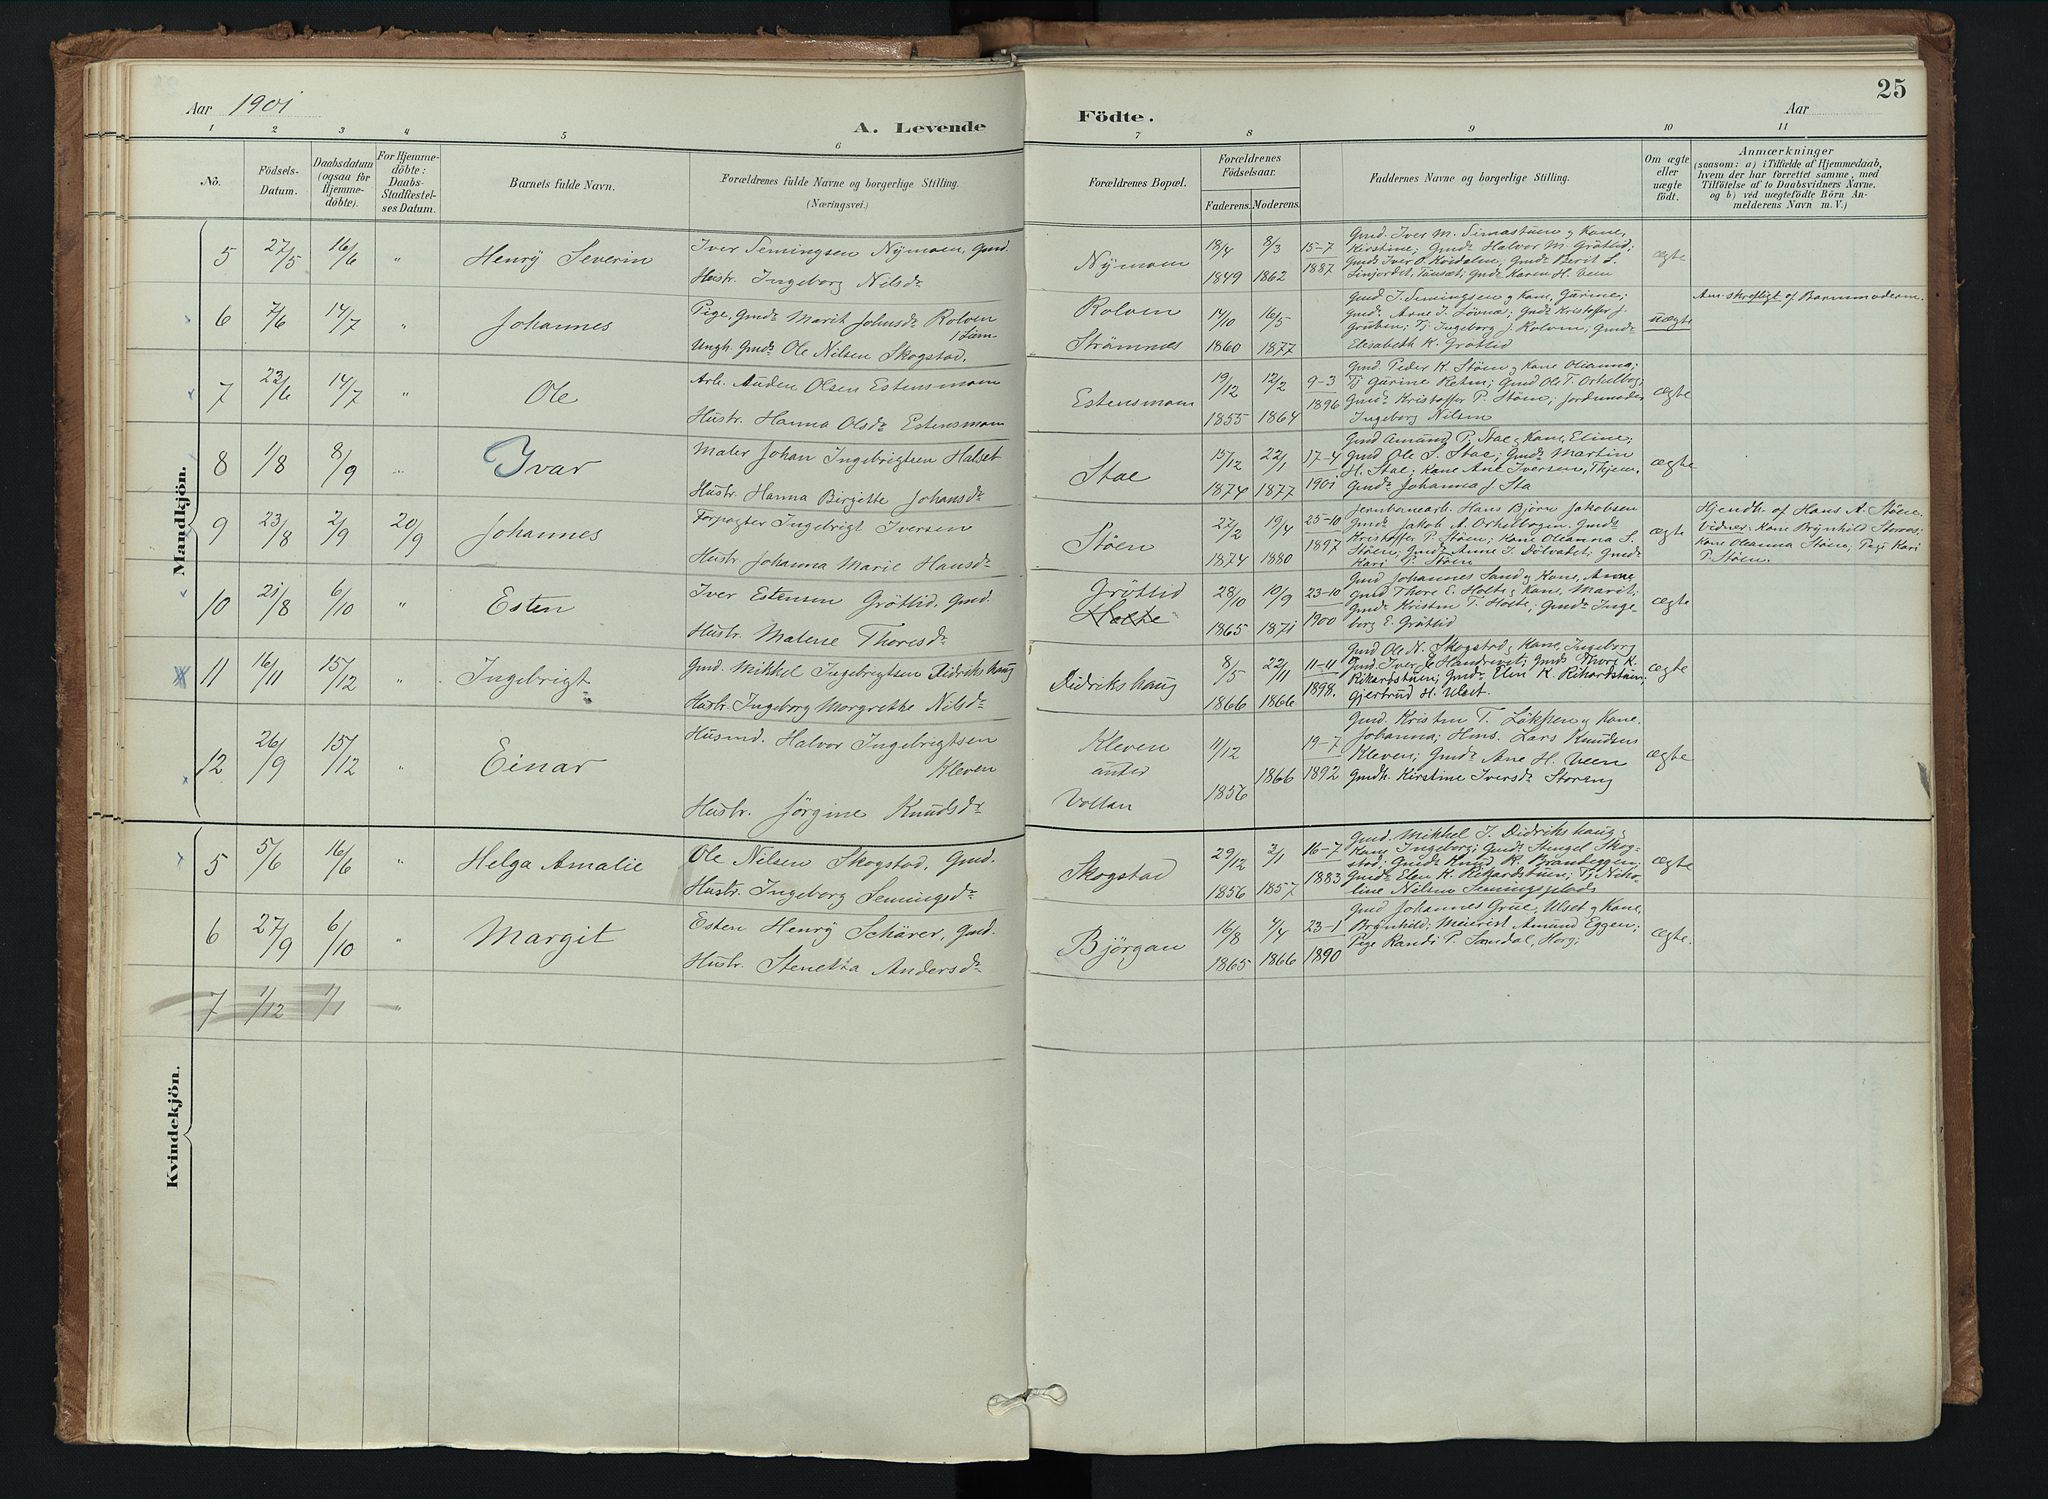 25
Aar 1901
A. Levende Födte.
Aar
1 2 3 4 5 6 7 8 9 10 11
No.
Födsels-Datum.
Daabsdatum (ogsaa for Hjemme-döbte).
For Hjemme-döbte: Daabs-Stadfæstel-ses Datum.
Barnets fulde Navn.
Forældrenes fulde Navne og borgerlige Stilling.
(Næringsvei.)
Forældrenes Bopæl.
Forældrenes Födselsaar.
Faderens. Moderens.
Faddernes Navne og borgerlige Stilling.
Om ægte eller uægte födt.
Anmærkninger
(saasom: a) i Tilfælde af Hjemmedaab,
hvem der har forrettet samme, med
Tilföielse af to Daabsvidners Navne,
og b) ved uægtefödte Börn An-
melderens Navn m. V.)
Mandkjön.
5 27/5 16/6 " Henry Severin
Iver Semingsen Nymoen, Gmd.
Hustr. Ingeborg Nilsdr
Nymoen
18/4 1849 8/3 1862 15-7 1887
Gmd. Iver M. Simastuen og Kone,
Kirstine; Gmdr Halvor M. Grötlid;
Gmds Iver O. Koidalen; Gmdr Berit S.
Linjordet, Tunset; Gmdr Karen H. Veen
ægte
6 7/6 14/7 " Johannes
Pige, Gmdr Marit Johnsdr Rolven
Ungk. Gmds Ole Nilsen Skogstad.
Rolven
Strömnes
14/10 1860 16/5 1877
Gmd J. Semingsen og Kone, Gurine;
Gmdr Arne J. Lövnæ; Gmds Kristoffer J.
Gruben; Tj Ingeborg J. Rolven; Gmdr
Elisabeth K. Grötlid
uægte
Anm. skriftligt af Barnemoderen.
7 23/6 14/7 " Ole
Arb. Auden Olsen Estensmoen
Hustr. Hanna Olsdr Estensmoen
Estensmoen
19/12 1855 12/2 1864 9-3 1896
Gmd Peder K. Stöen og Kone Oleanna;
Tj Gurine Rehn; Gmd Ole T. Orhelbog;
Gmds Kristoffer P. Stöen; Jordemoder
Ingeborg Nilsen
ægte
8 1/8 8/9 " Ivar
Maler Johan Ingebrigtsen Halset
Hustr. Hanna Birgitte Johansdr
Stae
15/12 1874 22/1 1877 17-4 1901
Gmd Amund P. Stae og Kone, Eline;
Gmd Ole S. Stae; Gmds Martin
H. Stae; Kone Ane Iversen, Thjem;
Gmdr Johanna J. Sta
ægte
9 23/8 2/9 20/9 Johannes
Forpagter Ingebrigt Iversen
Hustr. Johanna Marie Hansdr
Stöen
27/2 1874 19/4 1880 25-10 1897
Jernbanearb. Hans Björn Jakobsen
Gmds Jakob A. Orhelbogen, Gmds
Kristoffer P. Stöen; Kone Oleanna S.
Stöen; Gmdr Anne J. Dölvadet; Gmdr
Kari G. Stöen
ægte
Hjemdb. af Hans A. Stöen,
Vidner: Kone Brynhild Storaas;
Kone Oleanna Stöen; Pige Kari
P. Stöen.
10 21/8 6/10 " Esten
Iver Estensen Grötlid, Gmd.
Hustr. Malene Thoresdr
Grötlid
Holte
28/10 1865 10/9 1871 23-10 1900
Gmd Johannes Sand og Kone, Anne
Gmd Thore E. Holte og Kone, Marit;
Gmds Kristen T. Holte; Gmdr Inge-
borg E. Grötlid
ægte
11 16/11 15/12 " Ingebrigt
Gmd. Mikkel Ingebrigtsen Didrikshaug
Hustr. Ingeborg Margrethe Nilsdr
Didrikshaug
8/5 1866 22/11 1866 11-11 1898.
Gmd Ole N. Skogstad og Kone, Ingeborg
Gmd. Iver E. Handrevet; Gmds Thore K.
Rikardstuen; Gmdr Elen K. Rikardstuen;
Gjertrud H. Ulset.
ægte
12 26/9 15/12 " Einar
Husmd. Halvor Ingebrigtsen
Kleven
Hustr. Jörgine Knudsdr
Kleven
under
Vollan
11/12 1856 1866 19-7 1892
Gmd. Kristen T. Lökken og Kone.
Johanna; Hms. Lars Knudsen
Kleven; Gmdr Ane H. Veen
Gmdk. Kirstine Iversdr Storeng
ægte
Kvindekjön.
5 5/6 16/6 " Helga Amalie
Ole Nilsen Skogstad, Gmd.
Hustr. Ingeborg Semingsdr
Skogstad
29/12 1856 2/1 1857 16-7 1883
Gmd. Mikkel I. Didrikshaug og
Kone Ingeborg; Gmdr Stengel Skog-
stad; Gmds Knud R. Brandeggen;
Gmdr Elen K. Rikardstuen; Tj Niko-
line Nilsen Semingsplads
ægte
6 27/9 6/10 " Margit
Esten Henry Schärer, Gmd.
Hustr. Stenetta Andersdr
Björgan
16/8 1865 4/4 1866 23-1 1890
Gmd Johannes Grue, Ulset og Kone,
Brynhild; Meierist Amund Eggen;
Pige Randi P. Samdal, Horg;
ægte.
7 1/12 1/1 "